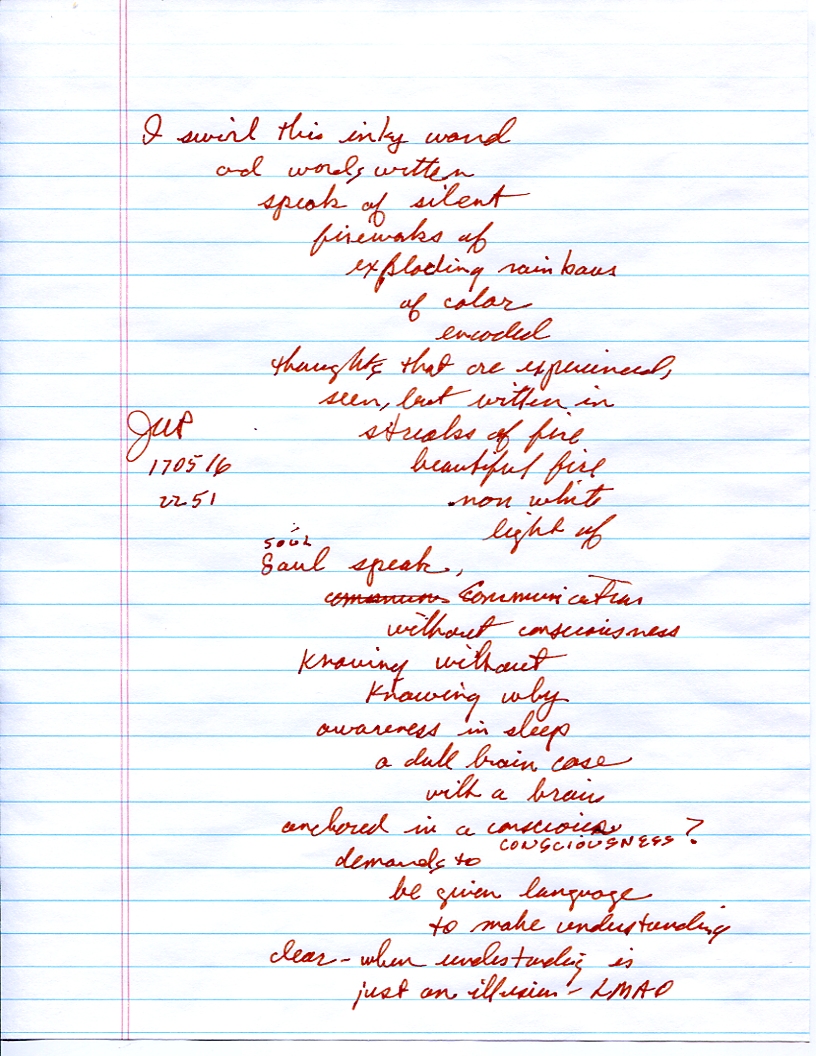 I swirl this inky wand
and words written
speak of silent
fireworks of
exploding rainbows
of color
encoded
thoughts that are experienced,
seen, but written in
JWP streaks of fire
170516 beautiful fire
2251 non white
light of
SOUL
Soul speak,
communi Communication
without consciousness
Knowing without
Knowing why
awareness in sleep
a dull brain case
with a brain
anchored in a conscious ?
CONSCIOUSNESS
demands to
be given language
to make understanding
clear - when understanding is
just an illusion - LMAO